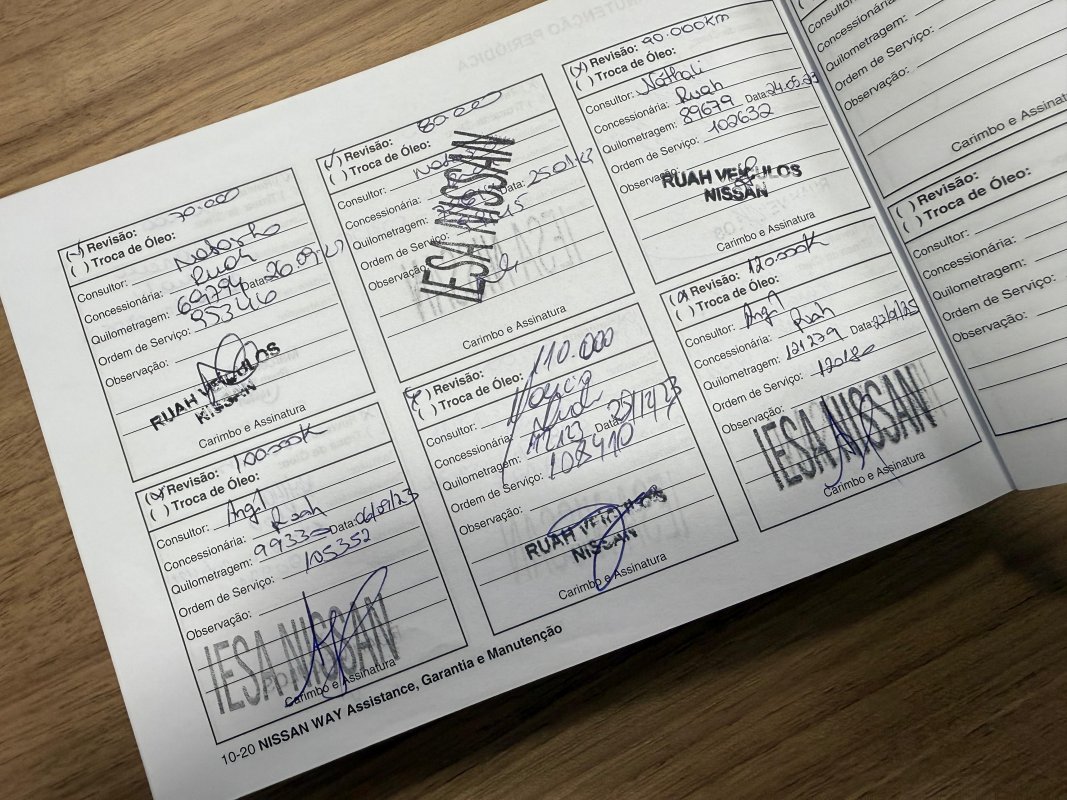 70.000
(✓) Revisão:
( ) Troca de Óleo:
Consultor:
Concessionária: Ruah
Quilometragem: 69794 Data:
Ordem de Serviço: 95346
Observação:
RUAH VEÍCULOS
NISSAN
Carimbo e Assinatura
80.000
(✓) Revisão:
( ) Troca de Óleo:
Consultor:
Concessionária:
Quilometragem: Data:
Ordem de Serviço:
Observação:
IESA NISSAN
Carimbo e Assinatura
(x) Revisão: 90.000km
( ) Troca de Óleo:
Consultor: Nathali
Concessionária: Ruah
Quilometragem: 89679 Data: 24.05.23
Ordem de Serviço: 102632
Observação:
RUAH VEÍCULOS
NISSAN
Carimbo e Assinatura
(x) Revisão: 100.000K
( ) Troca de Óleo:
Consultor: Angl
Concessionária: Ruah
Quilometragem: 99330 Data: 06/09/23
Ordem de Serviço: 105352
Observação:
IESA NISSAN
Carimbo e Assinatura
( ) Revisão: 110.000
( ) Troca de Óleo:
Consultor:
Concessionária:
Quilometragem: Data:
Ordem de Serviço: 108410
Observação:
RUAH VEÍCULOS
NISSAN
Carimbo e Assinatura
(x) Revisão: 120.000K
( ) Troca de Óleo:
Consultor: Angl
Concessionária: Ruah
Quilometragem: 121279 Data:
Ordem de Serviço: 120180
Observação:
IESA NISSAN
Carimbo e Assinatura
10-20 NISSAN WAY Assistance, Garantia e Manutenção
Consultor:
Concessionária:
Quilometragem:
Ordem de Serviço:
Observação:
Carimbo e Assin
( ) Revisão:
( ) Troca de Óleo:
Consultor:
Concessionária:
Quilometragem:
Ordem de Serviço:
Observação: